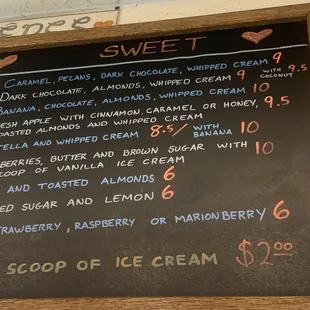 SWEET
CARAMEL, PECANS, DARK CHOCOLATE, WHIPPED CREAM 9
DARK CHOCOLATE, ALMONDS, WHIPPED CREAM 9 WITH COCONUT 9.5
BANANA, CHOCOLATE, ALMONDS, WHIPPED CREAM 10
APPLE WITH CINNAMON, CARAMEL OR HONEY, 9.5
TOASTED ALMONDS AND WHIPPED CREAM
AND WHIPPED CREAM 8.5/ WITH BANANA 10
BUTTER AND BROWN SUGAR WITH 10
SCOOP OF VANILLA ICE CREAM
AND TOASTED ALMONDS 6
SUGAR AND LEMON 6
STRAWBERRY, RASPBERRY OR MARIONBERRY 6
SCOOP OF ICE CREAM $2.00